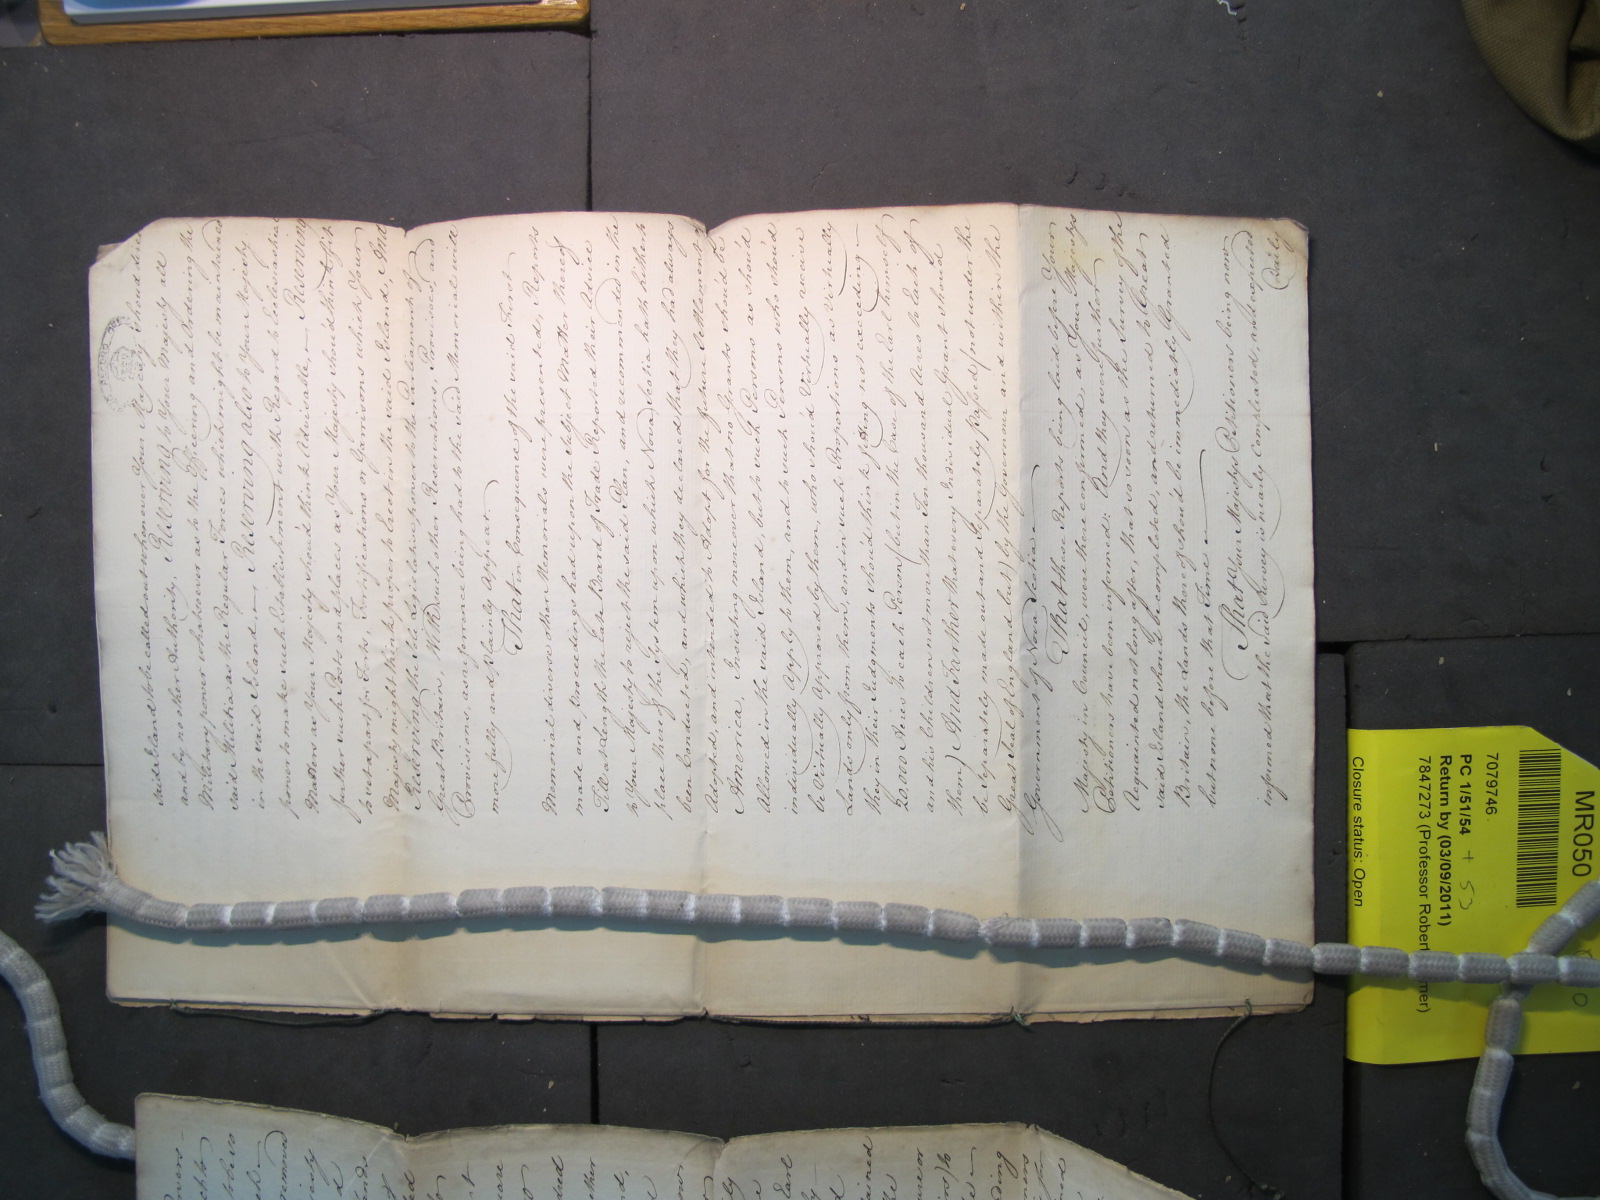 said Island to be called out whenever Your Majesty should direct
and by no other Authority, Reserving to Your Majesty all
Military power whatsoever as to the Officering and Ordering the
said Militia as the Regular Forces which might be maintained
in the said Island — Reserving also to Your Majesty
power to make such Establishment with Regard to Ecclesiastical
Matters as Your Majesty should think Adviseable, — Reserving
further such Posts and places as Your Majesty should think fit
to set apart for Forts, Fortifications or Garrisons which Your
Majesty might think proper to Erect in the said Island, And
Reserving the sole Legislative power to the Parliament of
Great Britain, With such other Reservations, Provisoes, and
Provisions, as reference being had to the said Memorial will
more fully and plainly Appear.
That in Consequence of the said First
Memorial divers other Memorials were presented, Reports
made and Proceedings had upon the Subject Matter thereof
Till at length the late Board of Trade Reported their Advice
to Your Majesty to reject the said Plan, and recommended in the
place thereof the System upon which Nova Scotia hath hitherto
been Conducted, and which they declared that they had always
Adopted, and intended to Adopt for the future Settlement of
America, Insisting moreover that no Grants should be
Allowed in the said Island, but to such Persons as should
individually Apply to them, and such Persons who should
be Virtually Approved by them, who should Virtually receive
Lands only from them, and in such Proportions as Virtually
they in their Judgments should think fitting not exceeding —
20,000 Acres to each Person (but in the Case of the Earl himself
and his Children not more than Ten thousand Acres to Each of
them) And Further that every Individual Grant should
be Separately made out and Separately passed (not under the
Great Seal of England but) by the Governor and within the
Government of Nova Scotia —
That these Reports being laid before Your
Majesty in Council, were there confirmed, as Your Majestys
Petitioners have been informed: And they were further
Acquainted not long after, that so soon as the Survey of the
said Island should be compleated, and returned to Great
Britain, the Lands thereof should be immediately Granted
but none before that Time —
That Your Majestys Petitioners being now
informed that the said Survey is nearly Compleated, and convinced
MR050
7079746
PC 1/51/54 + 53
Return by (03/09/2011)
7847273 (Professor Robert
Closure status: Open